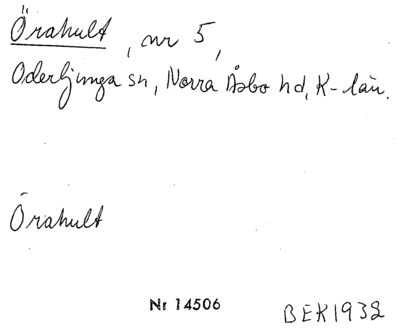 Örahult, nr 5,
Oderljunga sn, Norra Åsbo hd, K-län.
Örahult
Nr 14506
BEK1932